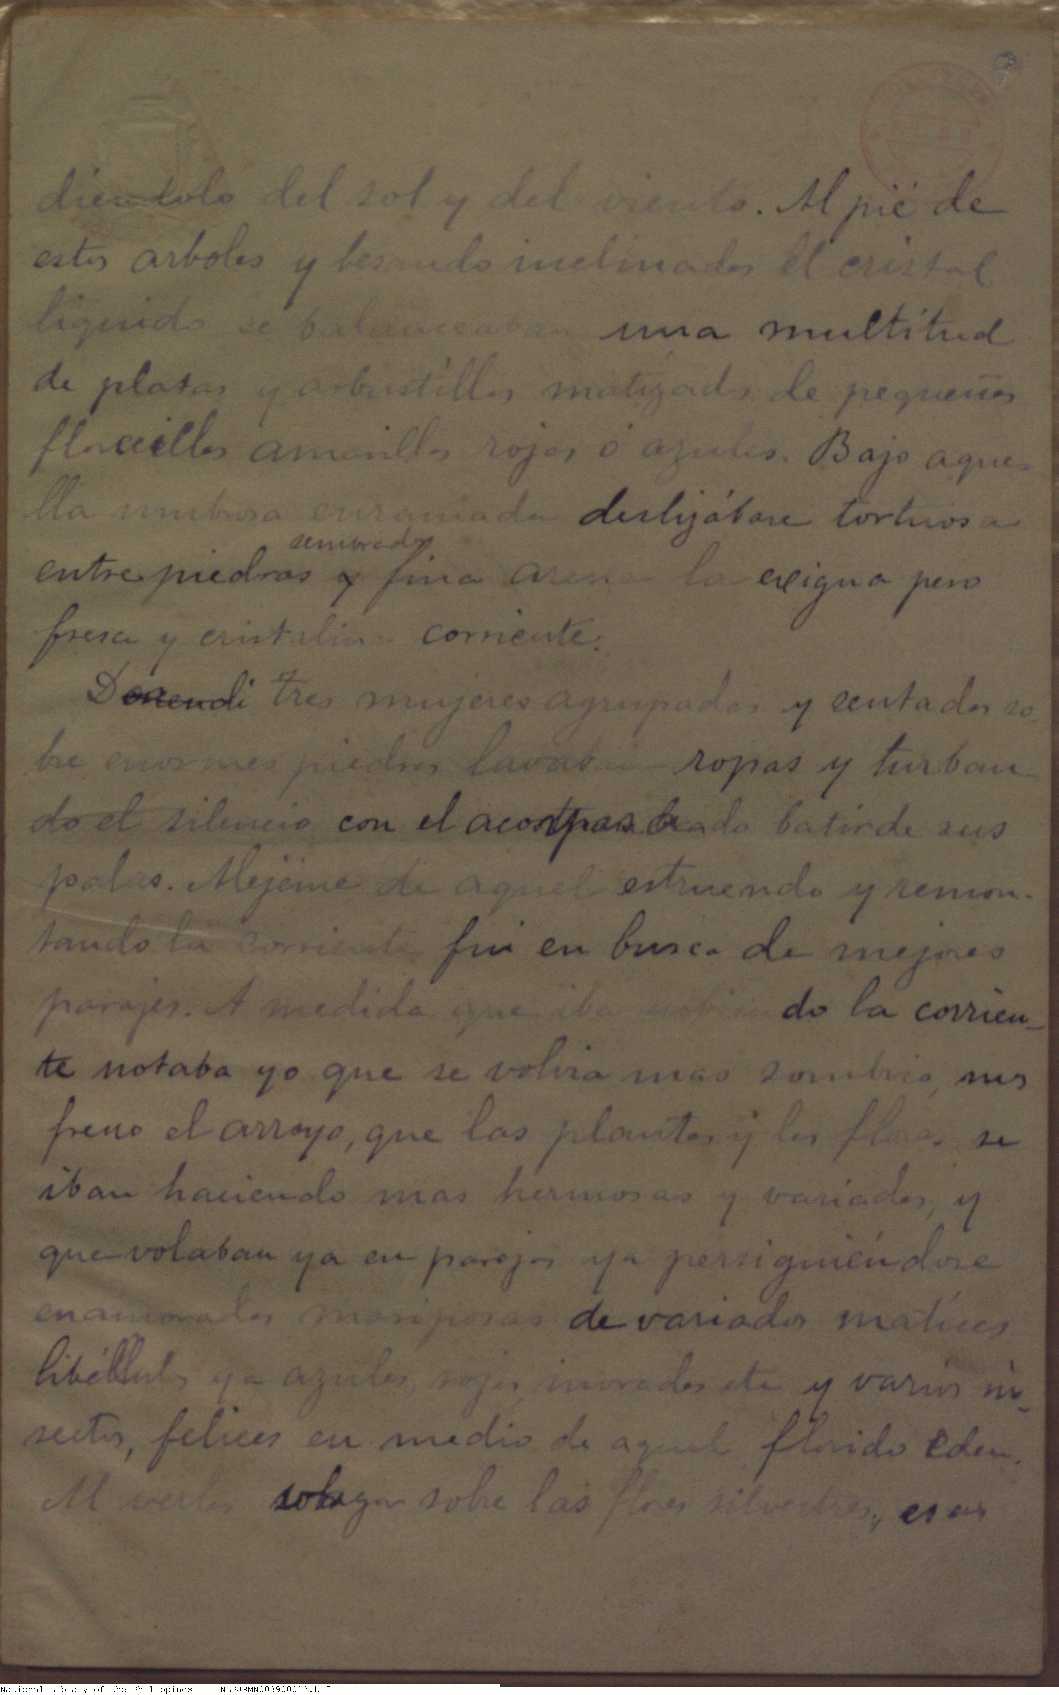 diéndolo del sol y del viento. Al pié de
estos arboles y besando inclinados el cristal
líquido se balanceaban una multitud
de platas y arbustillos matizados de pequeñas
florecillas amarillas rojas ó azules. Bajo aque-
lla umbrosa enramada deslizábase tortuosa
sembrados
entre piedras y fina arena la exigua pero
fresca y cristalina corriente.
Descendí tres mujeres agrupadas y sentadas so-
bre enormes piedras lavaban ropas y turban-
do el silencio con el acompasado batir de sus
palas. Alejéme de aquel estruendo y remon-
tando la corriente fui en busca de mejores
parajes. A medida que iba subiendo la corrien-
te notaba yo que se volvia mas sombrio, mas
fresco el arroyo, que las plantas y las flores se
iban haciendo mas hermosas y variadas, y
que volaban ya en parejas ya persiguiéndose
enamoradas mariposas de variados matices
libéllulas ya azules, rojas, moradas etc y varios in-
sectos, felices en medio de aquel florido Eden.
Al verlos sobre las flores silvestres, esas
National Library of the Philippines